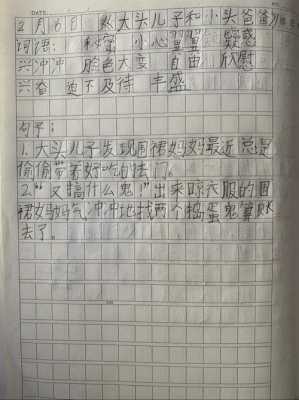 DATE
2月6日 熊大头儿子和小头爸爸
词语: 秘密 小心翼翼 疑惑
兴冲冲 脸色大变 自由 欣慰
兴奋 迫不及待 丰盛
句子:
1.大头儿子发现围裙妈妈最近总是
偷偷带着好吃的去门。
2."又搞什么鬼!"出来晾衣服的围
裙妈妈气冲冲地找两个捣蛋鬼算账
去了。